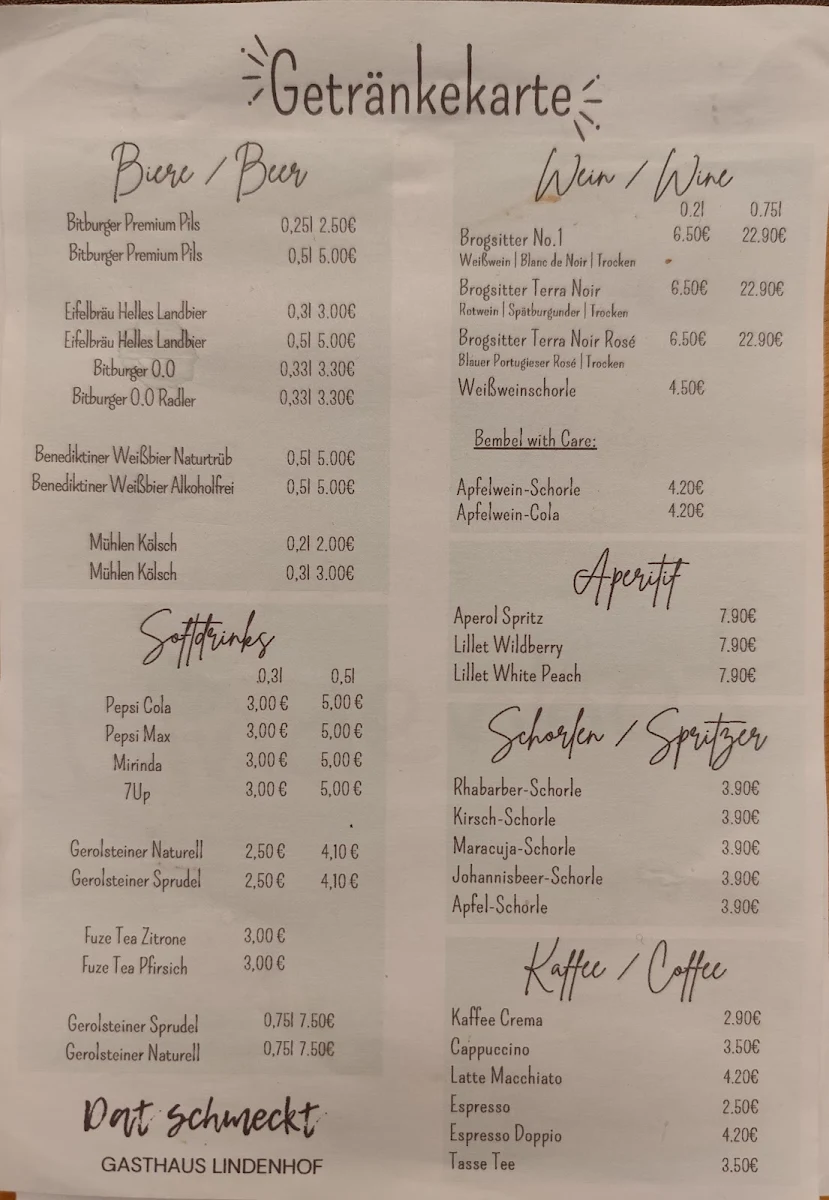 Getränkekarte
Biere / Beer
Bitburger Premium Pils 0,25l 2.50€
Bitburger Premium Pils 0,5l 5.00€
Eifelbräu Helles Landbier 0,3l 3.00€
Eifelbräu Helles Landbier 0,5l 5.00€
Bitburger 0.0 0,33l 3.30€
Bitburger 0.0 Radler 0,33l 3.30€
Benediktiner Weißbier Naturtrüb 0,5l 5.00€
Benediktiner Weißbier Alkoholfrei 0,5l 5.00€
Mühlen Kölsch 0,2l 2.00€
Mühlen Kölsch 0,3l 3.00€
Softdrinks
0,3l 0,5l
Pepsi Cola 3,00 € 5,00 €
Pepsi Max 3,00 € 5,00 €
Mirinda 3,00 € 5,00 €
7Up 3,00 € 5,00 €
Gerolsteiner Naturell 2,50 € 4,10 €
Gerolsteiner Sprudel 2,50 € 4,10 €
Fuze Tea Zitrone 3,00 €
Fuze Tea Pfirsich 3,00 €
Gerolsteiner Sprudel 0,75l 7.50€
Gerolsteiner Naturell 0,75l 7.50€
Dat schmeckt
GASTHAUS LINDENHOF
Wein / Wine
0.2l 0.75l
Brogsitter No.1 6.50€ 22.90€
Weißwein | Blanc de Noir | Trocken
Brogsitter Terra Noir 6.50€ 22.90€
Rotwein | Spätburgunder | Trocken
Brogsitter Terra Noir Rosé 6.50€ 22.90€
Blauer Portugieser Rosé | Trocken
Weißweinschorle 4.50€
Bembel with Care:
Apfelwein-Schorle 4.20€
Apfelwein-Cola 4.20€
Aperitif
Aperol Spritz 7.90€
Lillet Wildberry 7.90€
Lillet White Peach 7.90€
Schorlen / Spritzer
Rhabarber-Schorle 3.90€
Kirsch-Schorle 3.90€
Maracuja-Schorle 3.90€
Johannisbeer-Schorle 3.90€
Apfel-Schorle 3.90€
Kaffee / Coffee
Kaffee Crema 2.90€
Cappuccino 3.50€
Latte Macchiato 4.20€
Espresso 2.50€
Espresso Doppio 4.20€
Tasse Tee 3.50€